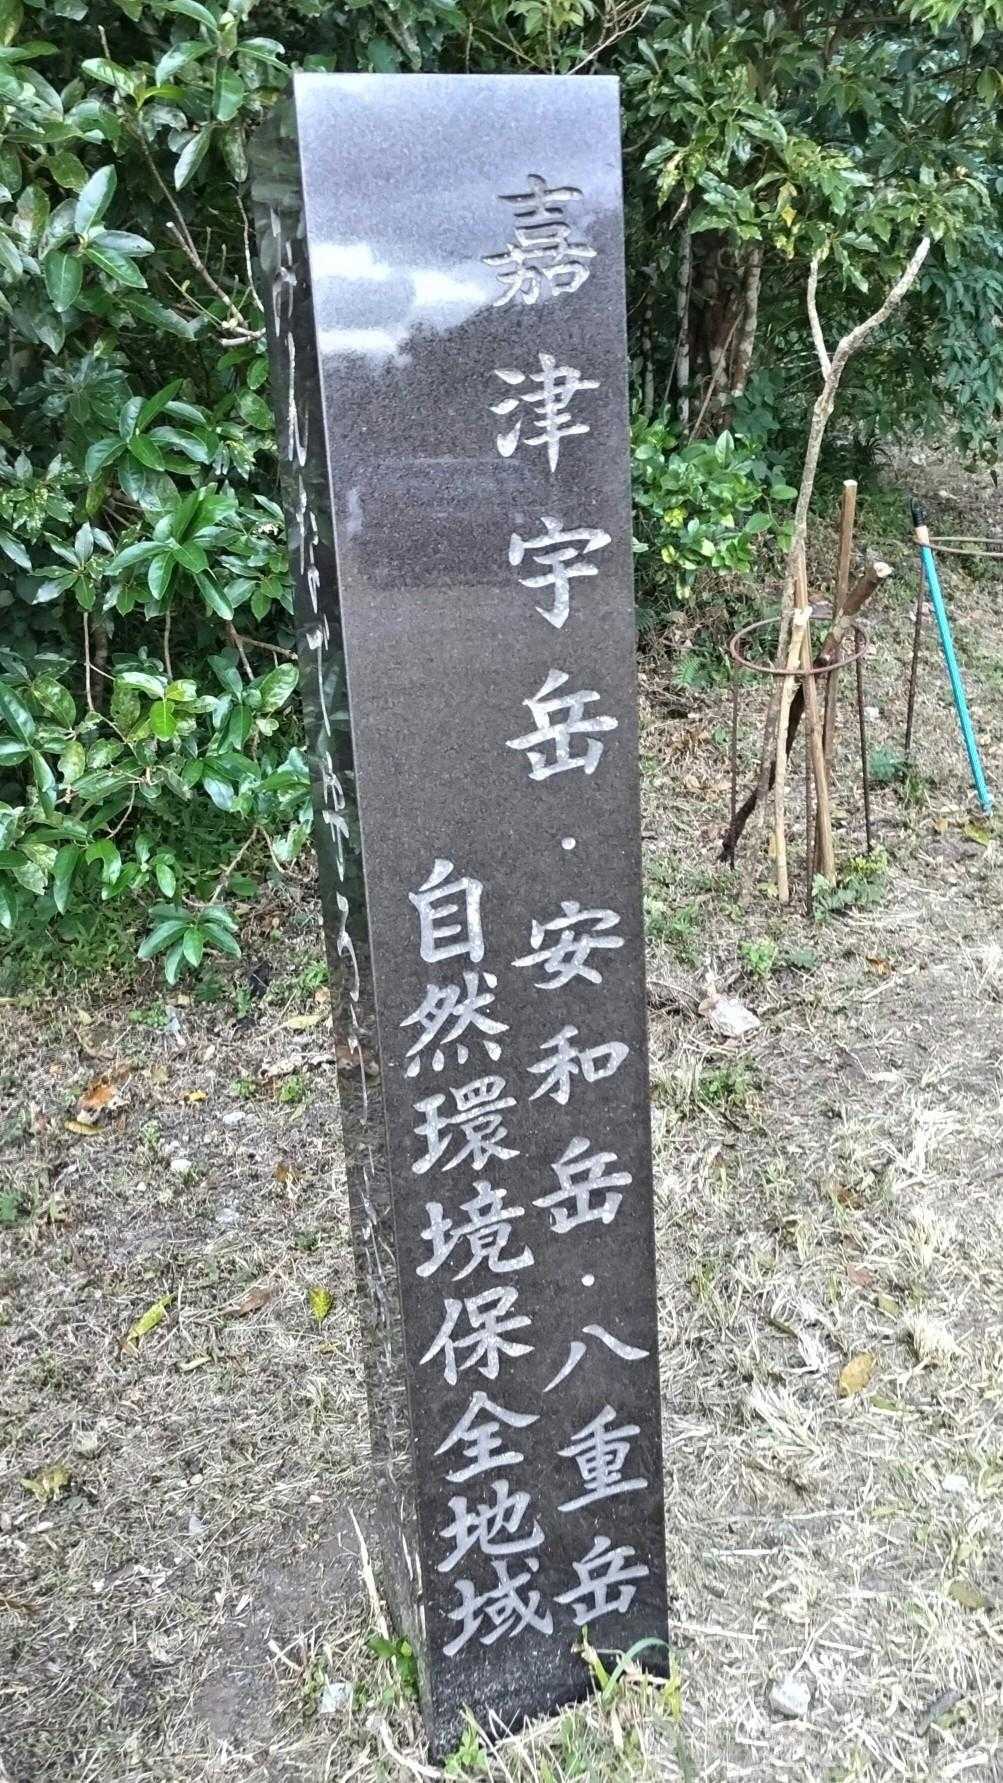 嘉津宇岳·安和岳·八重岳
自然環境保全地域